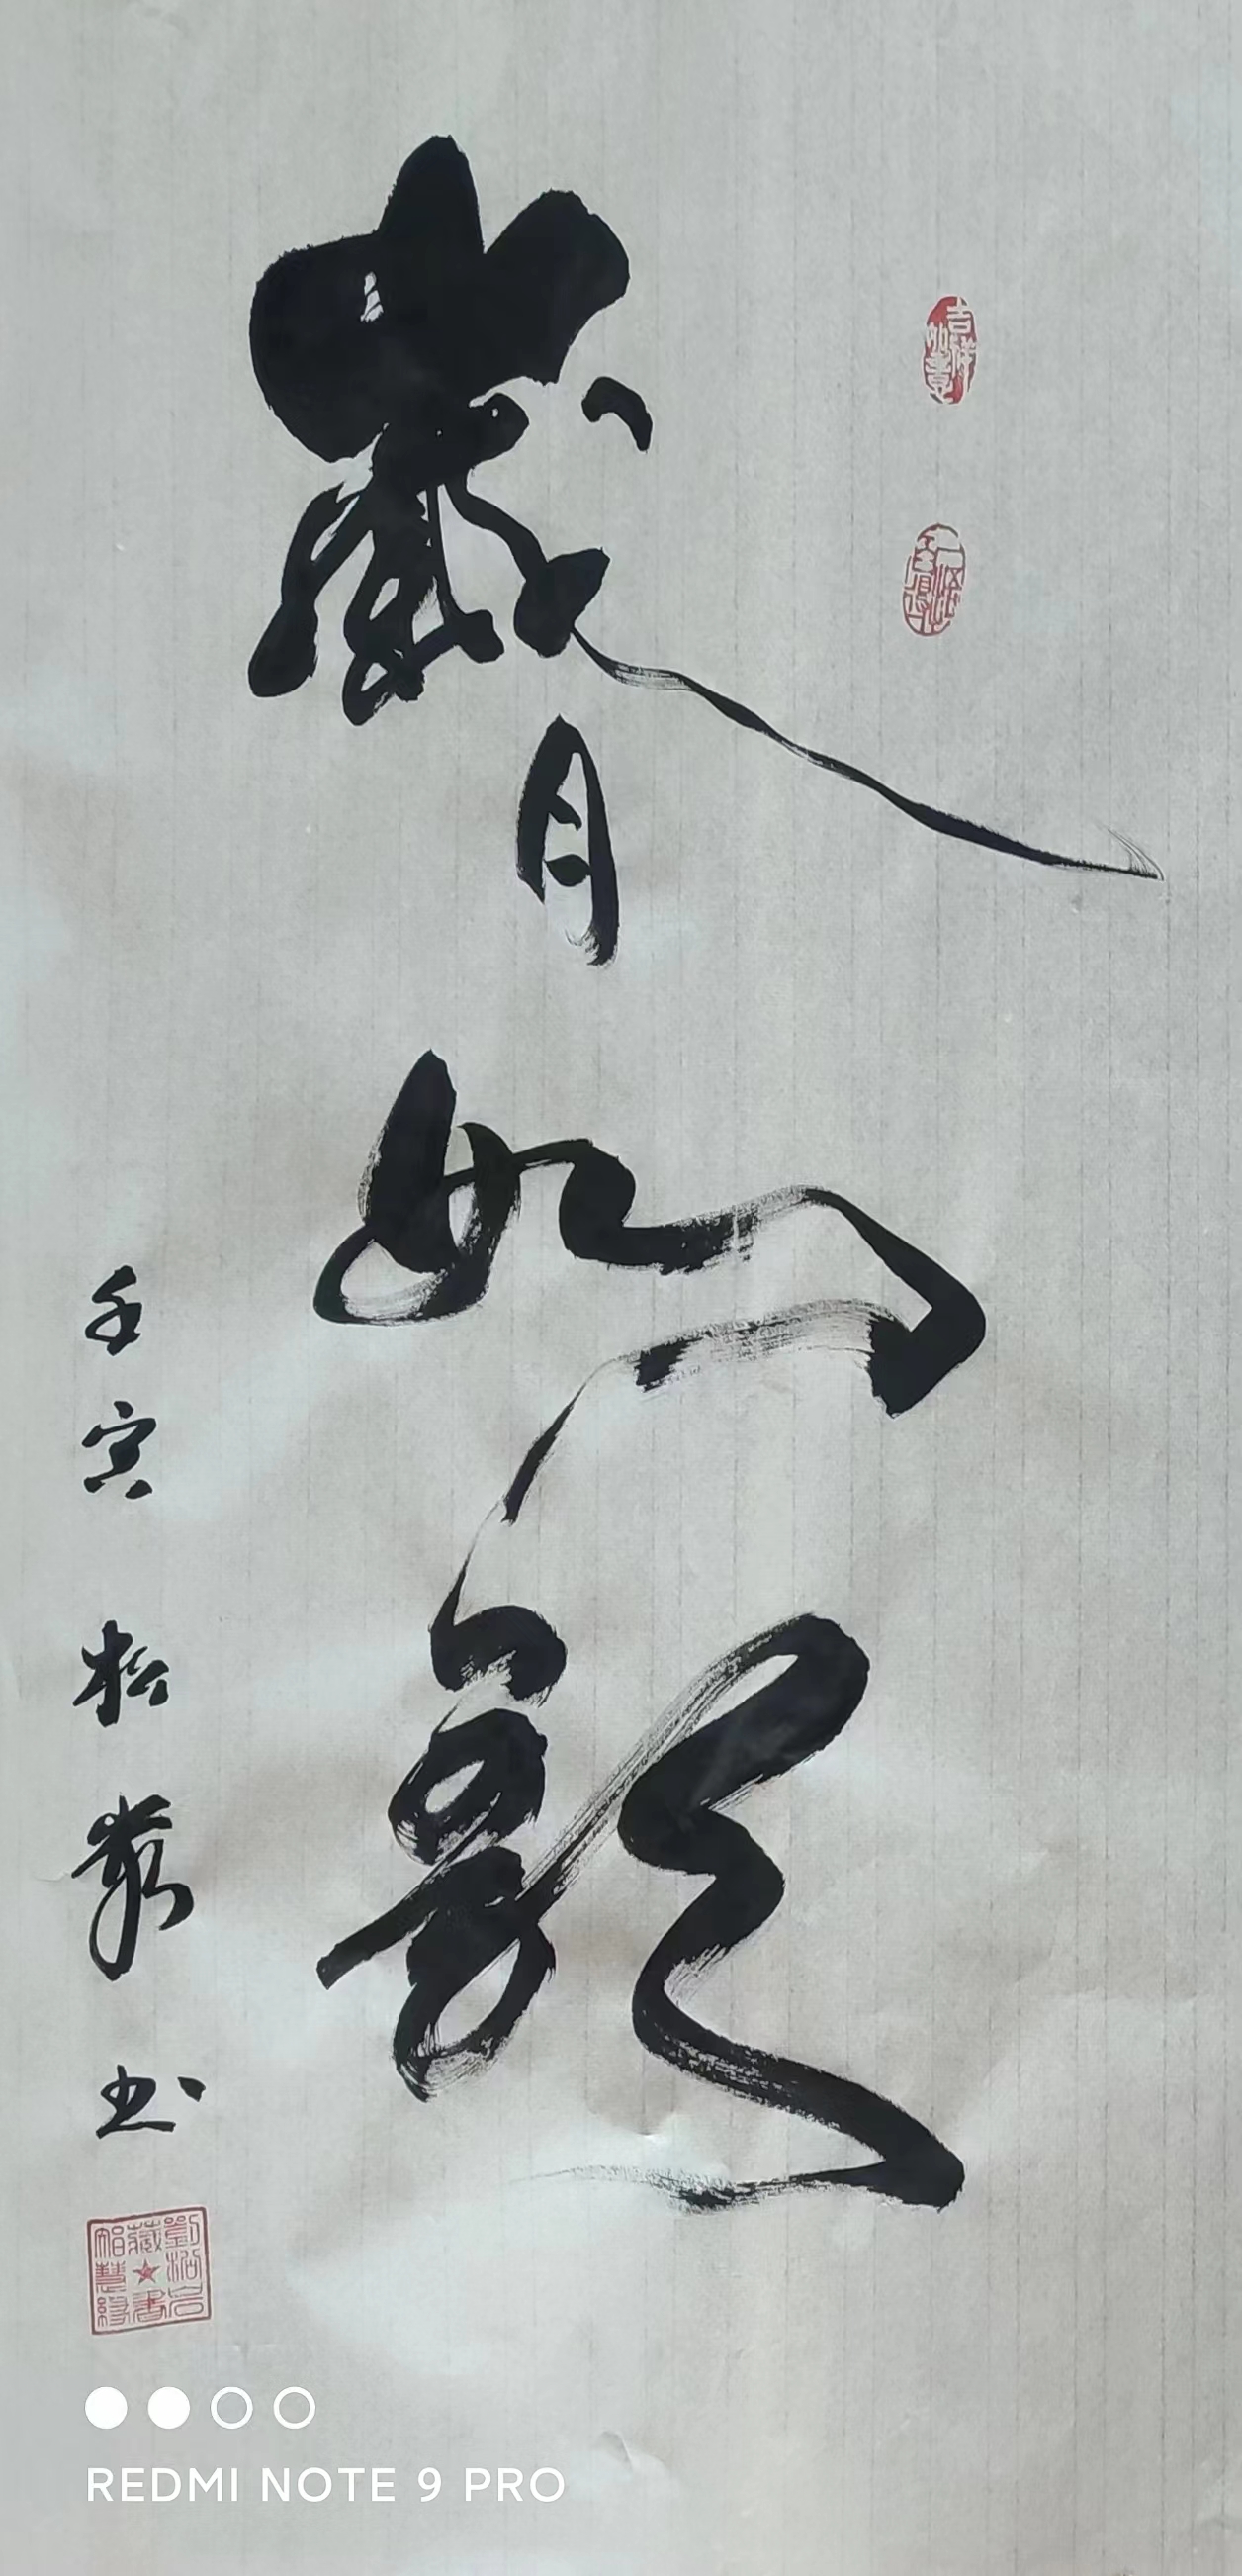 歲月如歌
壬寅 松嚴书
吉祥如意
REDMI NOTE 9 PRO